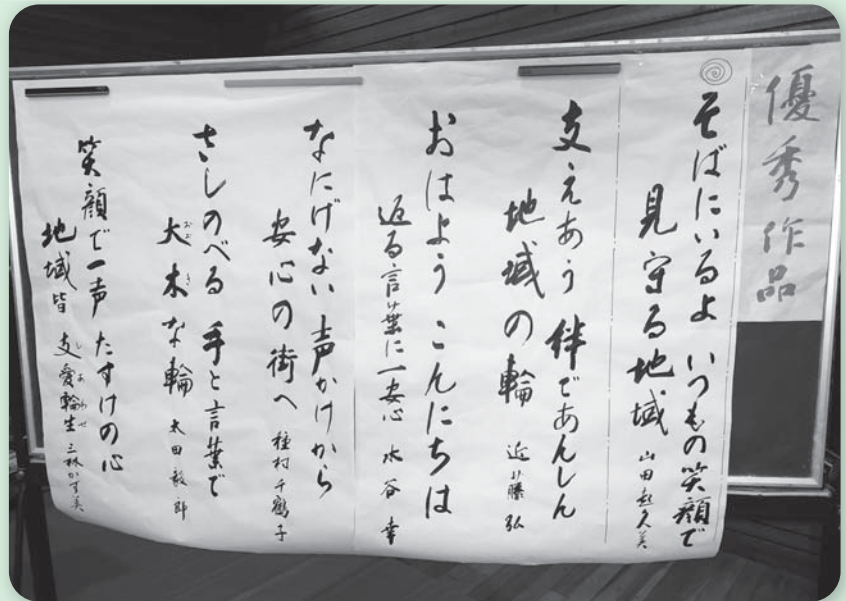 優秀作品
そばにいるよ いつもの笑顔で
見守る地域 山田
支えあう 絆であんしん
地域の輪 近藤弘
おはよう こんにちは
返る言葉に一安心 水谷 幸
なにげない 声かけから
安心の街へ 種村千鶴子
さしのべる 手と言葉で
大木な輪 太田毅郎
おおき
笑顔で一声 たすけの心
地域皆 支愛輪生 三林かす美
しあわせ